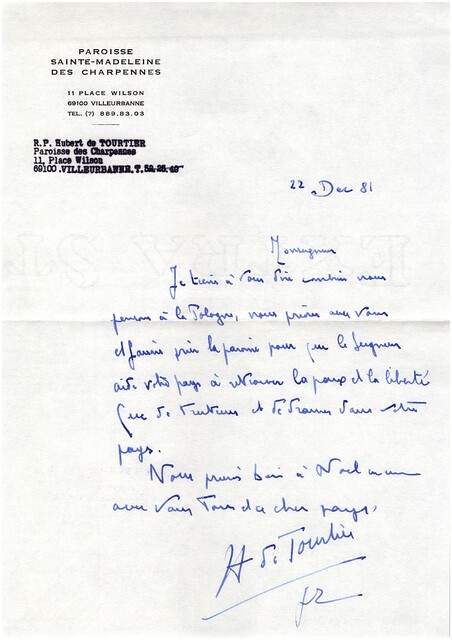 PAROISSE
SAINTE-MADELEINE
DES CHARPENNES
11 PLACE WILSON
69100 VILLEURBANNE
TEL. (7) 889.83.03
R.P. Hubert de TOURTIER
Paroisse des Charpennes
11, Place Wilson
69100 .VILLEURBANNE.T.52-25-49
22 Dec 81
Monseigneur
Je tiens à vous dire combien nous
pensons à la Pologne, nous prions avec vous
et faisons prier la paroisse pour que le Seigneur
aide votre pays à retrouver la paix et la liberté
Que de tristesses et de drames dans votre
pays.
Nous prierons bien à Noël
avec vous Tous et ce cher pays,
H de Tourtier